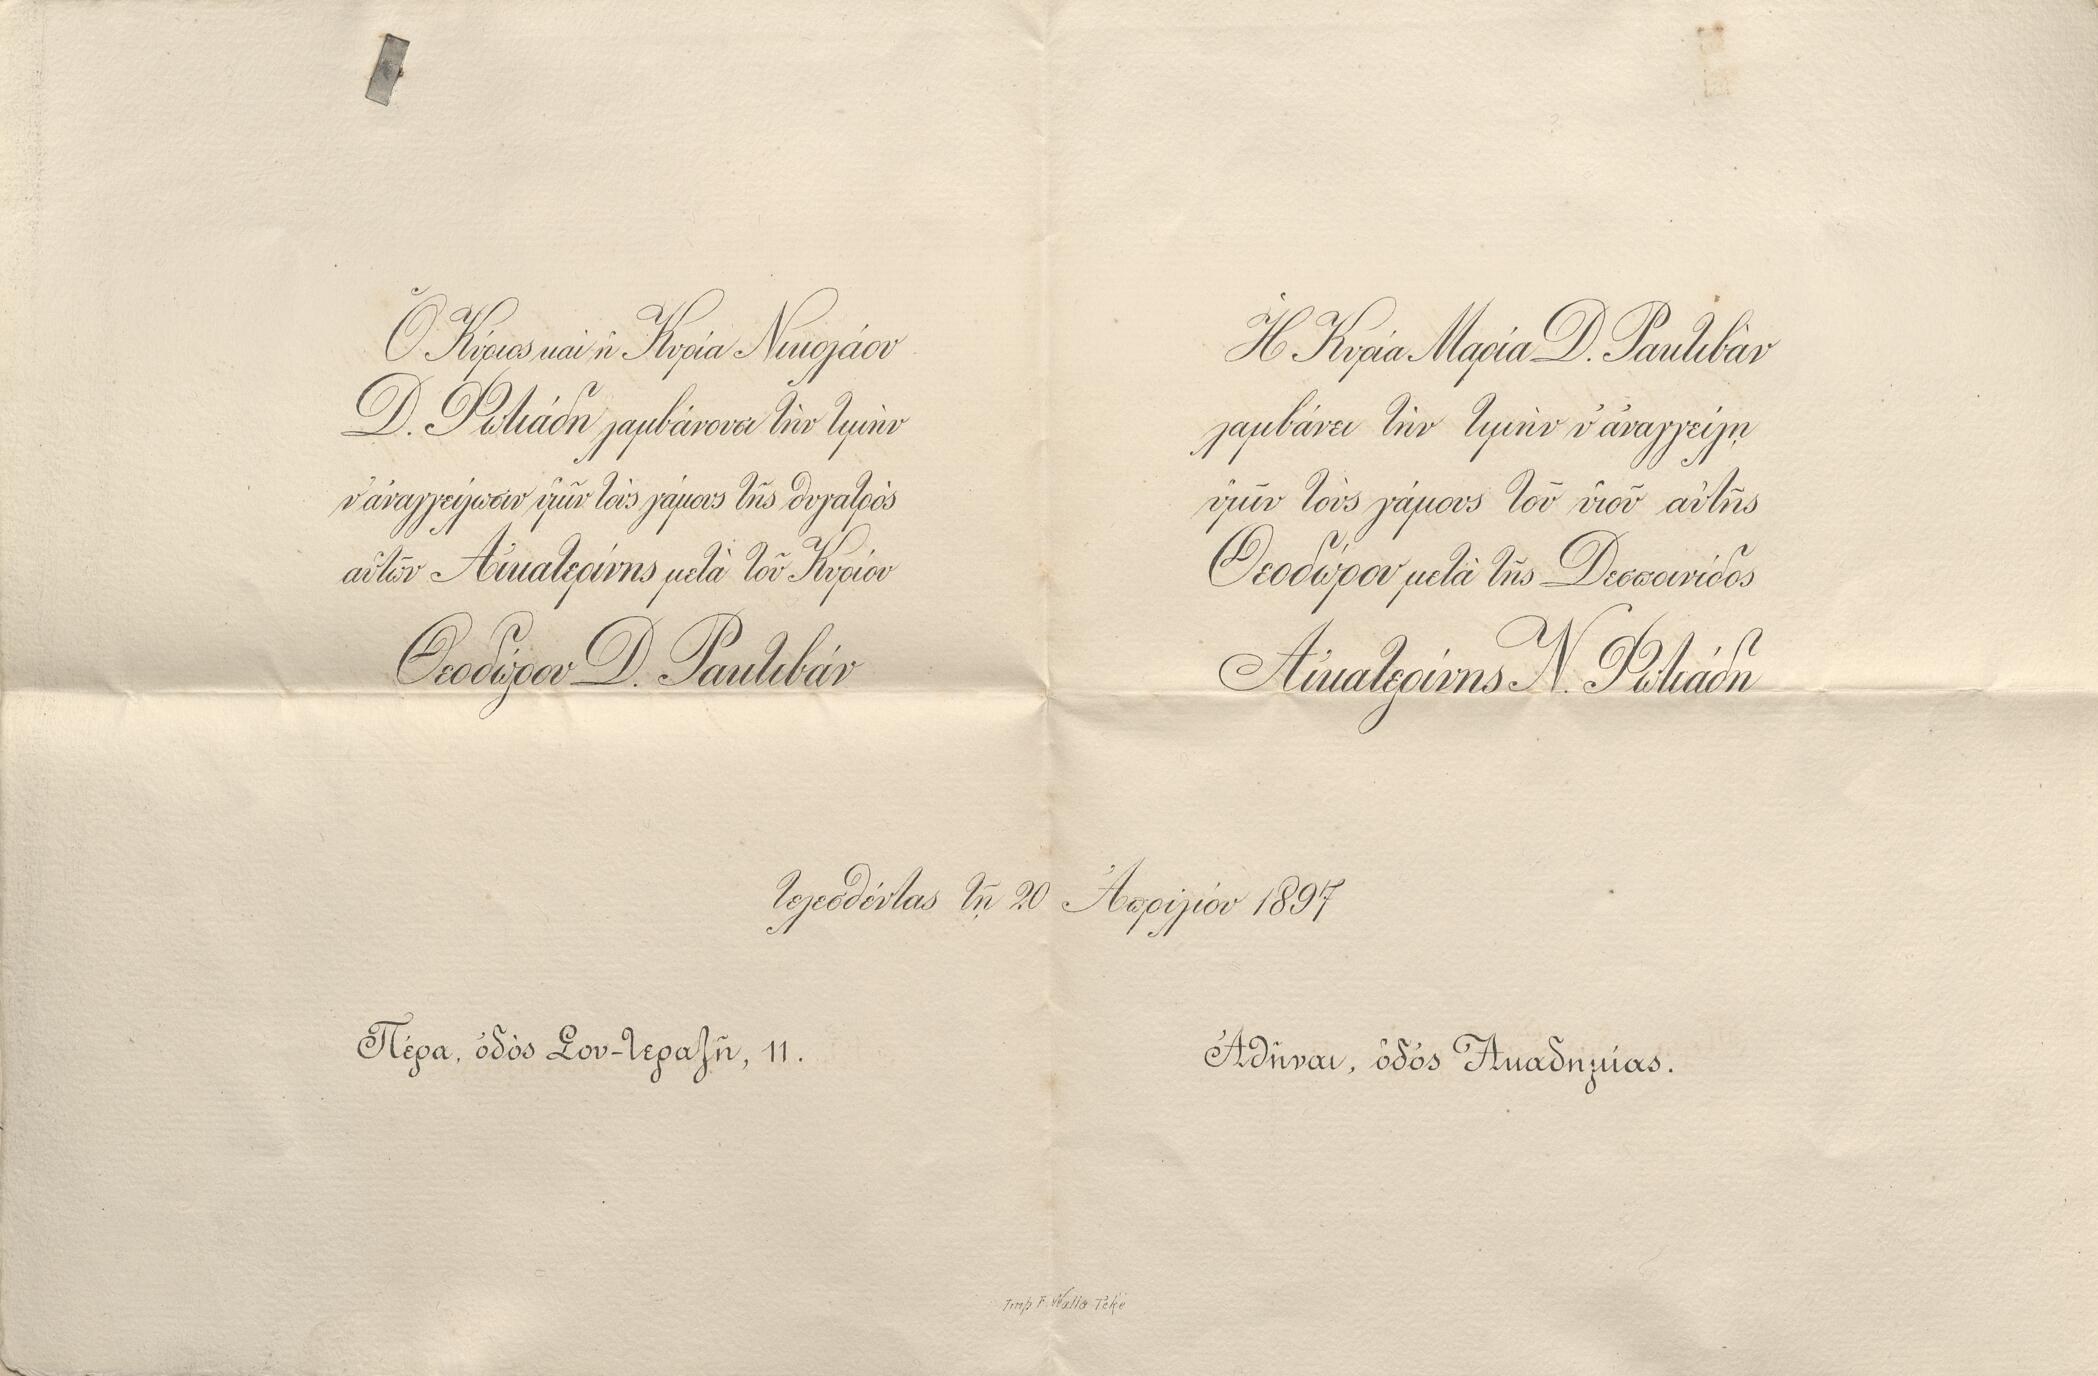 Ὁ Κύριος καὶ ἡ Κυρία Νικολάου
Δ. Φωτιάδη λαμβάνουσι τὴν τιμὴν
ν' ἀναγγείλωσιν ὑμῖν τοὺς γάμους τῆς θυγατρὸς
αὑτῶν Αἰκατερίνης μετὰ τοῦ Κυρίου
Θεοδώρου Δ. Ρακτιβάν
Ἡ Κυρία Μαρία Δ. Ρακτιβὰν
λαμβάνει τὴν τιμὴν ν' ἀναγγείλῃ
ὑμῖν τοὺς γάμους τοῦ υἱοῦ αὑτῆς
Θεοδώρου μετὰ τῆς Δεσποινίδος
Αἰκατερίνης Ν. Φωτιάδη
τελεσθέντας τῇ 20 Ἀπριλίου 1897
Πέρα, ὁδὸς Σου-τεραζῆ, 11.
Ἀθῆναι, ὁδὸς Ἀκαδημίας.
Imp F. Wallo Téké